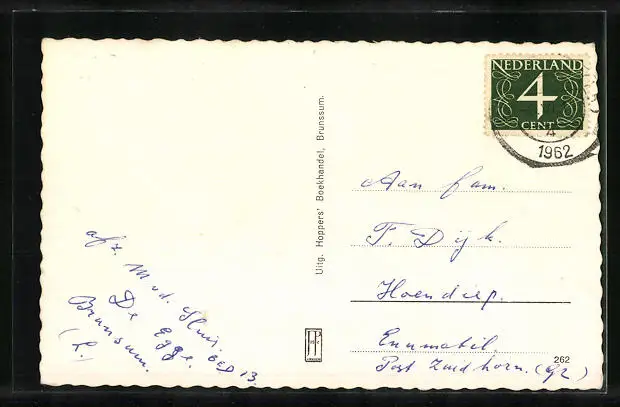 NEDERLAND
4
CENT
4
1962
Uitg. Hoppers' Boekhandel, Brunssum.
Aan fam.
T. Dijk.
Hoendiep.
Enumatil.
Post Zuidhorn. (Gr)
262
afz. M v.d. Sluis.
De Egge. BED 13.
Brunsum.
(L.)